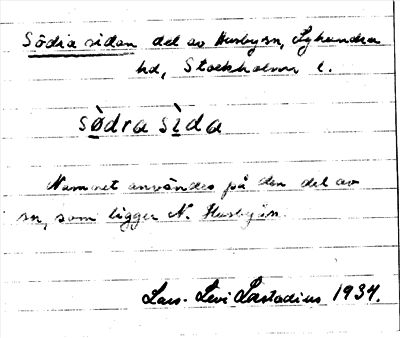 Södra sidan del av Husby sn, Lyhundra
hd, Stockholms l.
sò̲dra sì̲da
Namnet användes på den del av
sn, som ligger N. Husbyån.
Lars-Levi Læstadius 1934.